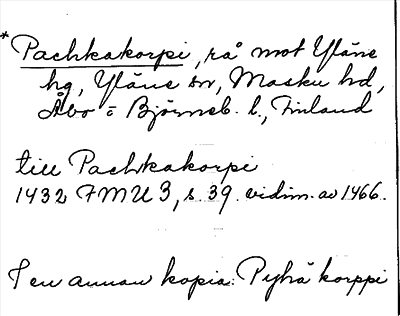 * Pachkakorpi, rå mot Yläne
hg, Yläne sn, Masku hd,
Åbo o Björneb. l., Finland
till Pachkakorpi
1432 FMU 3, s. 39. vidim. av 1466.
I en annan kopia: Pyhä korppi